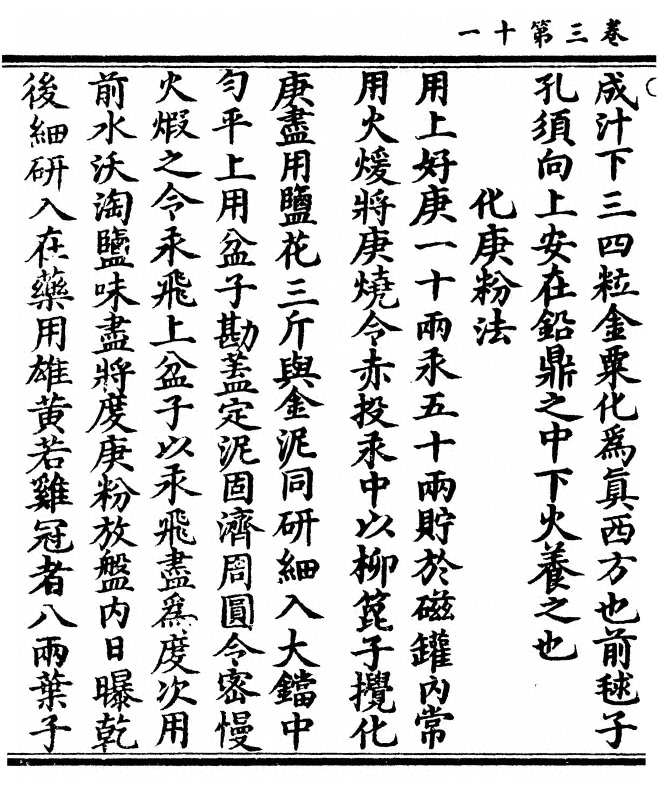 卷三第十一
成汁下三四粒金粟化爲眞西方也前毬子
孔須向上安在鉛鼎之中下火養之也
化庚粉法
用上好庚一十兩汞五十兩貯於磁罐内常
用火煖將庚燒令赤投汞中以柳篦子攪化
庚盡用鹽花三斤與金泥同研細入大鐺中
勻平上用盆子勘蓋定泥固濟周圓令密慢
火煆之令汞飛上盆子以汞飛盡爲度次用
前水沃淘鹽味盡將度庚粉放盤内日曝乾
後細研入在藥用雄黃若雞冠者八兩葉子